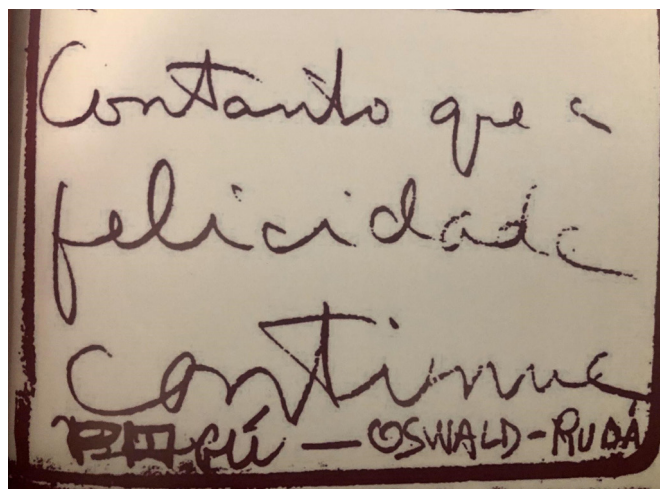 Contanto que a
felicidade
continue
— OSWALD - RUDÁ